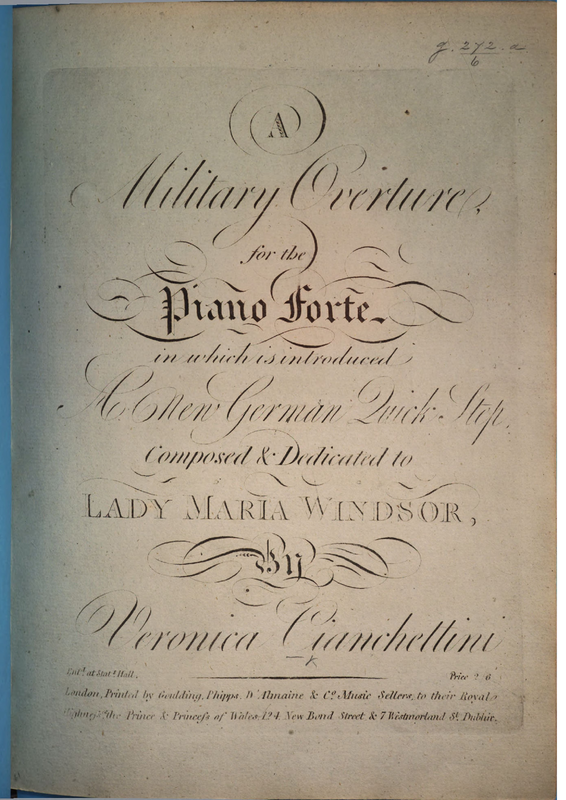 g. 272. a
6
A
Military Overture,
for the
Piano Forte.
in which is introduced
A New German Quick Step,
Composed & Dedicated to
LADY MARIA WINDSOR,
By
Veronica Cianchettini
Ent.d at Stat.s Hall. Price 2/6
London, Printed by Goulding, Phipps, D'Almaine & Co. Music Sellers, to their Royal
Highnesses the Prince & Princess of Wales, 124, New Bond Street, & 7 Westmorland St. Dublin.